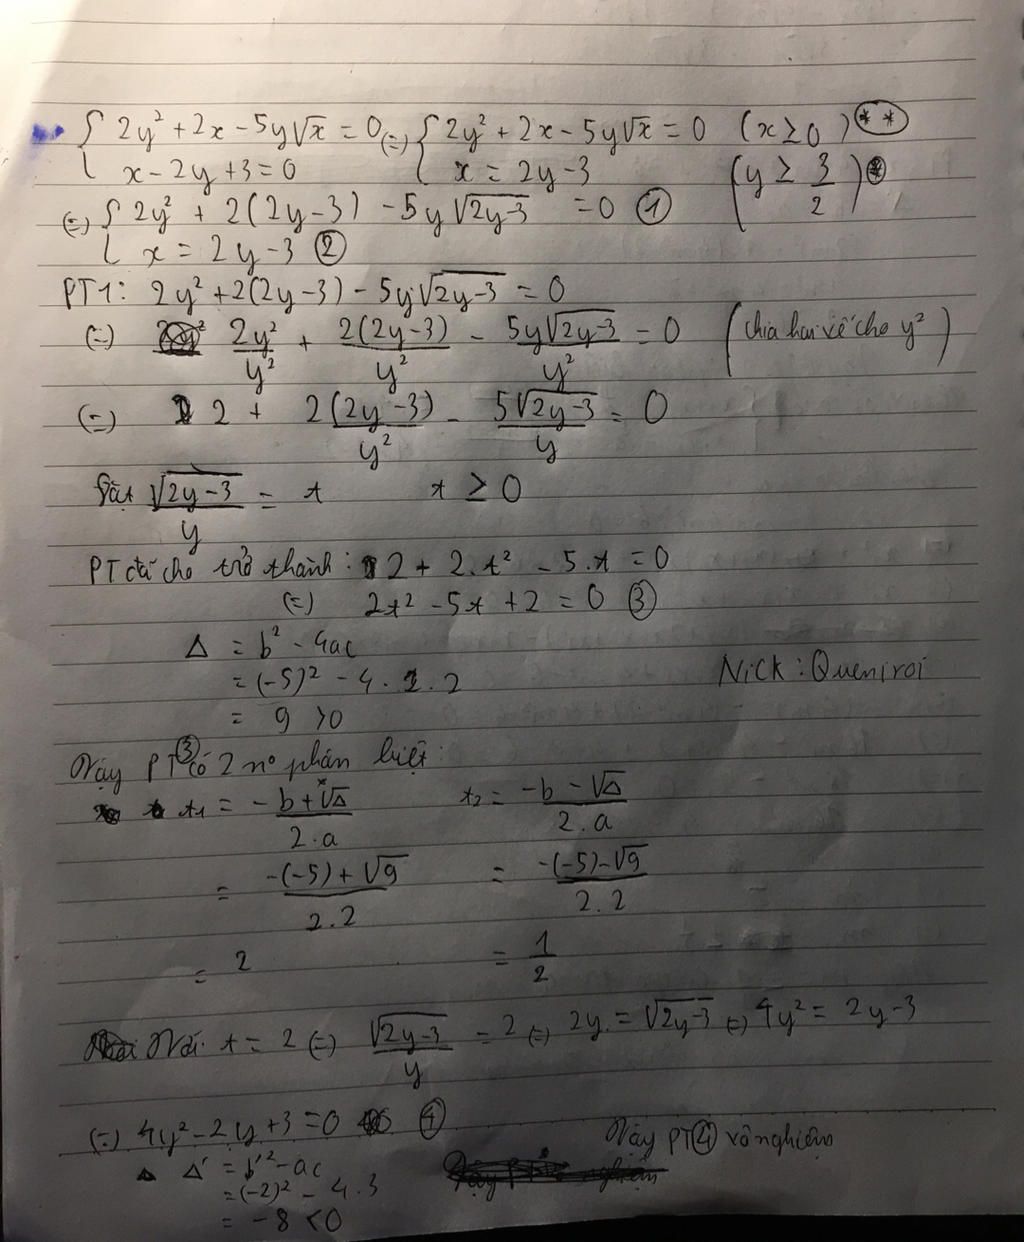 { 2y² + 2x - 5y√x = 0 (=) { 2y² + 2x - 5y√x = 0 (x ≥ 0) (**)
{ x - 2y + 3 = 0 { x = 2y - 3 (y ≥ 3/2) (*)
(=) { 2y² + 2(2y - 3) - 5y√(2y-3) = 0 (1)
{ x = 2y - 3 (2)
PT1: 2y² + 2(2y - 3) - 5y√(2y-3) = 0
(=) 2y²/y² + 2(2y-3)/y² - 5y√(2y-3)/y² = 0 (chia hai vế cho y²)
(=) 2 + 2(2y-3)/y² - 5√(2y-3)/y = 0
Đặt √(2y-3)/y = t t ≥ 0
PT đã cho trở thành: 2 + 2.t² - 5.t = 0
(=) 2t² - 5t + 2 = 0 (3)
Δ = b² - 4ac
= (-5)² - 4.2.2
= 9 >0
Vậy PT(3) có 2 no phân biệt:
t1 = (-b + √Δ)/(2.a) t2 = (-b - √Δ)/(2.a)
= (-(-5) + √9)/(2.2) = (-(-5) - √9)/(2.2)
= 2 = 1/2
Với t = 2 (=) √(2y-3)/y = 2 (=) 2y = √(2y-3) (=) 4y² = 2y - 3
(=) 4y² - 2y + 3 = 0 (4)
Δ' = b'² - ac
= (-2)² - 4.3
= -8 < 0
Vậy PT(4) vô nghiệm
NiCK: Queniroi